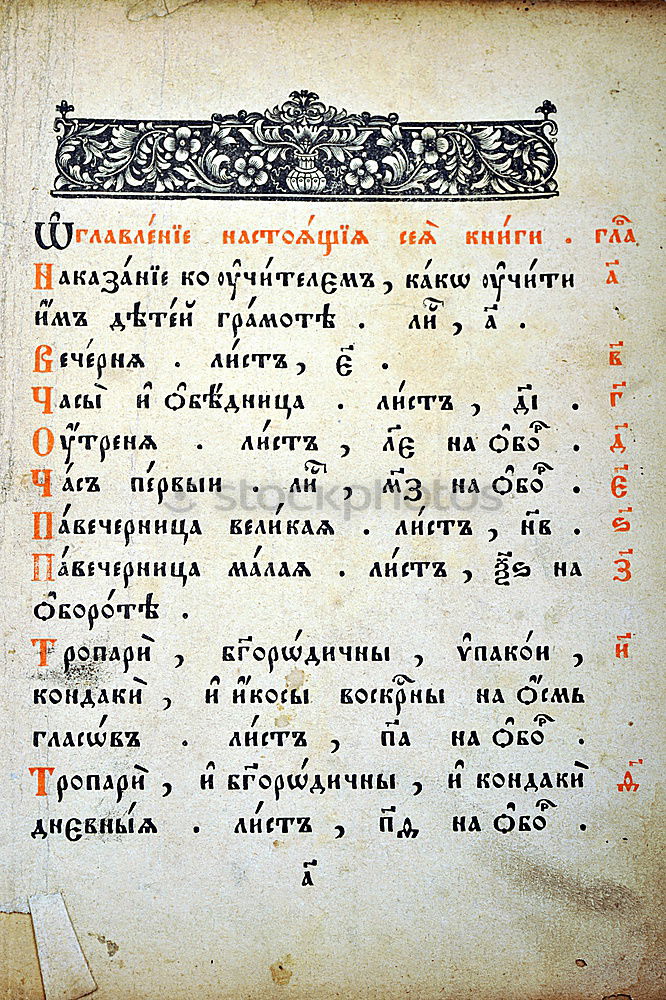 Ѡ҆главле́нїе настоѧ́щїѧ сеѧ̀ кни́ги . гла̑
Наказа́нїе ко ᲂу҆чи́телемъ , ка́кѡ ᲂу҆чи́ти а҃
и҆́мъ дѣте́й гра́мотѣ . ли̑ , а҃ .
Вече́рнѧ . ли́стъ , є҃ . в҃
Часы̀ и҆ ѻ҆бѣ́дница . ли́стъ , д҃і . г҃
Оу҆́тренѧ . ли́стъ , л҃є на ѻ҆бо̑ . д҃
Ча́съ пе́рвыи . ли̑ , м҃з на ѻ҆бо̑ . є҃
Па́вечерница вели́каѧ . ли́стъ , н҃в . ѕ҃
Па́вечерница ма́лаѧ . ли́стъ , ѯ҃ѕ на з҃
ѻ҆боро́тѣ .
Тропарѝ , бг҃оро́дичны , ᲂу҆пако́и , и҃
кондакѝ , и҆ и҆́косы воскр҇ны на ѻ҆́смь
гласѡ́въ . ли́стъ , п҃а на ѻ҆бо̑ .
Тропарѝ , и҆ бг҃орѡ́дичны , и҆ кондакѝ ѳ҃
дневны́ѧ . ли́стъ , п҃ѳ на ѻ҆бо̑ .
а҃
stockphotos